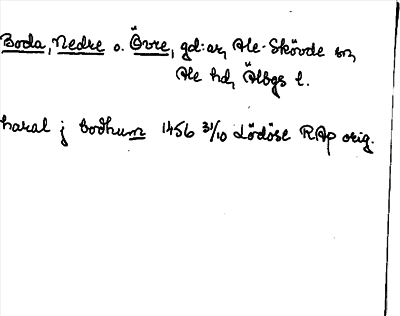 Boda, Nedre o. Övre, gd:ar, Ale-Skövde sn,
Ale hd, Älvbgs l.
haral j bodhum 1456 31/10 Lödöse RAp orig.